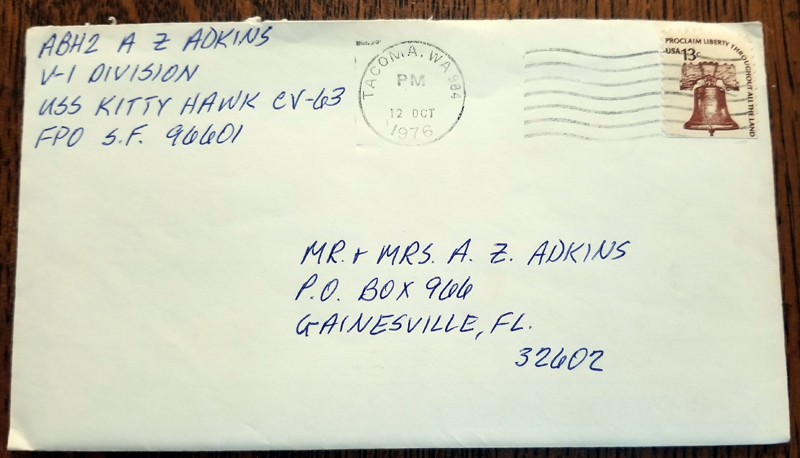 ABH2 A Z ADKINS
V-1 DIVISION
USS KITTY HAWK CV-63
FPO S.F. 96601
TACOMA, WA 984
PM
12 OCT
1976
PROCLAIM LIBERTY THROUGHOUT ALL THE LAND
USA 13c
MR. & MRS. A. Z. ADKINS
P.O. BOX 966
GAINESVILLE, FL.
32602